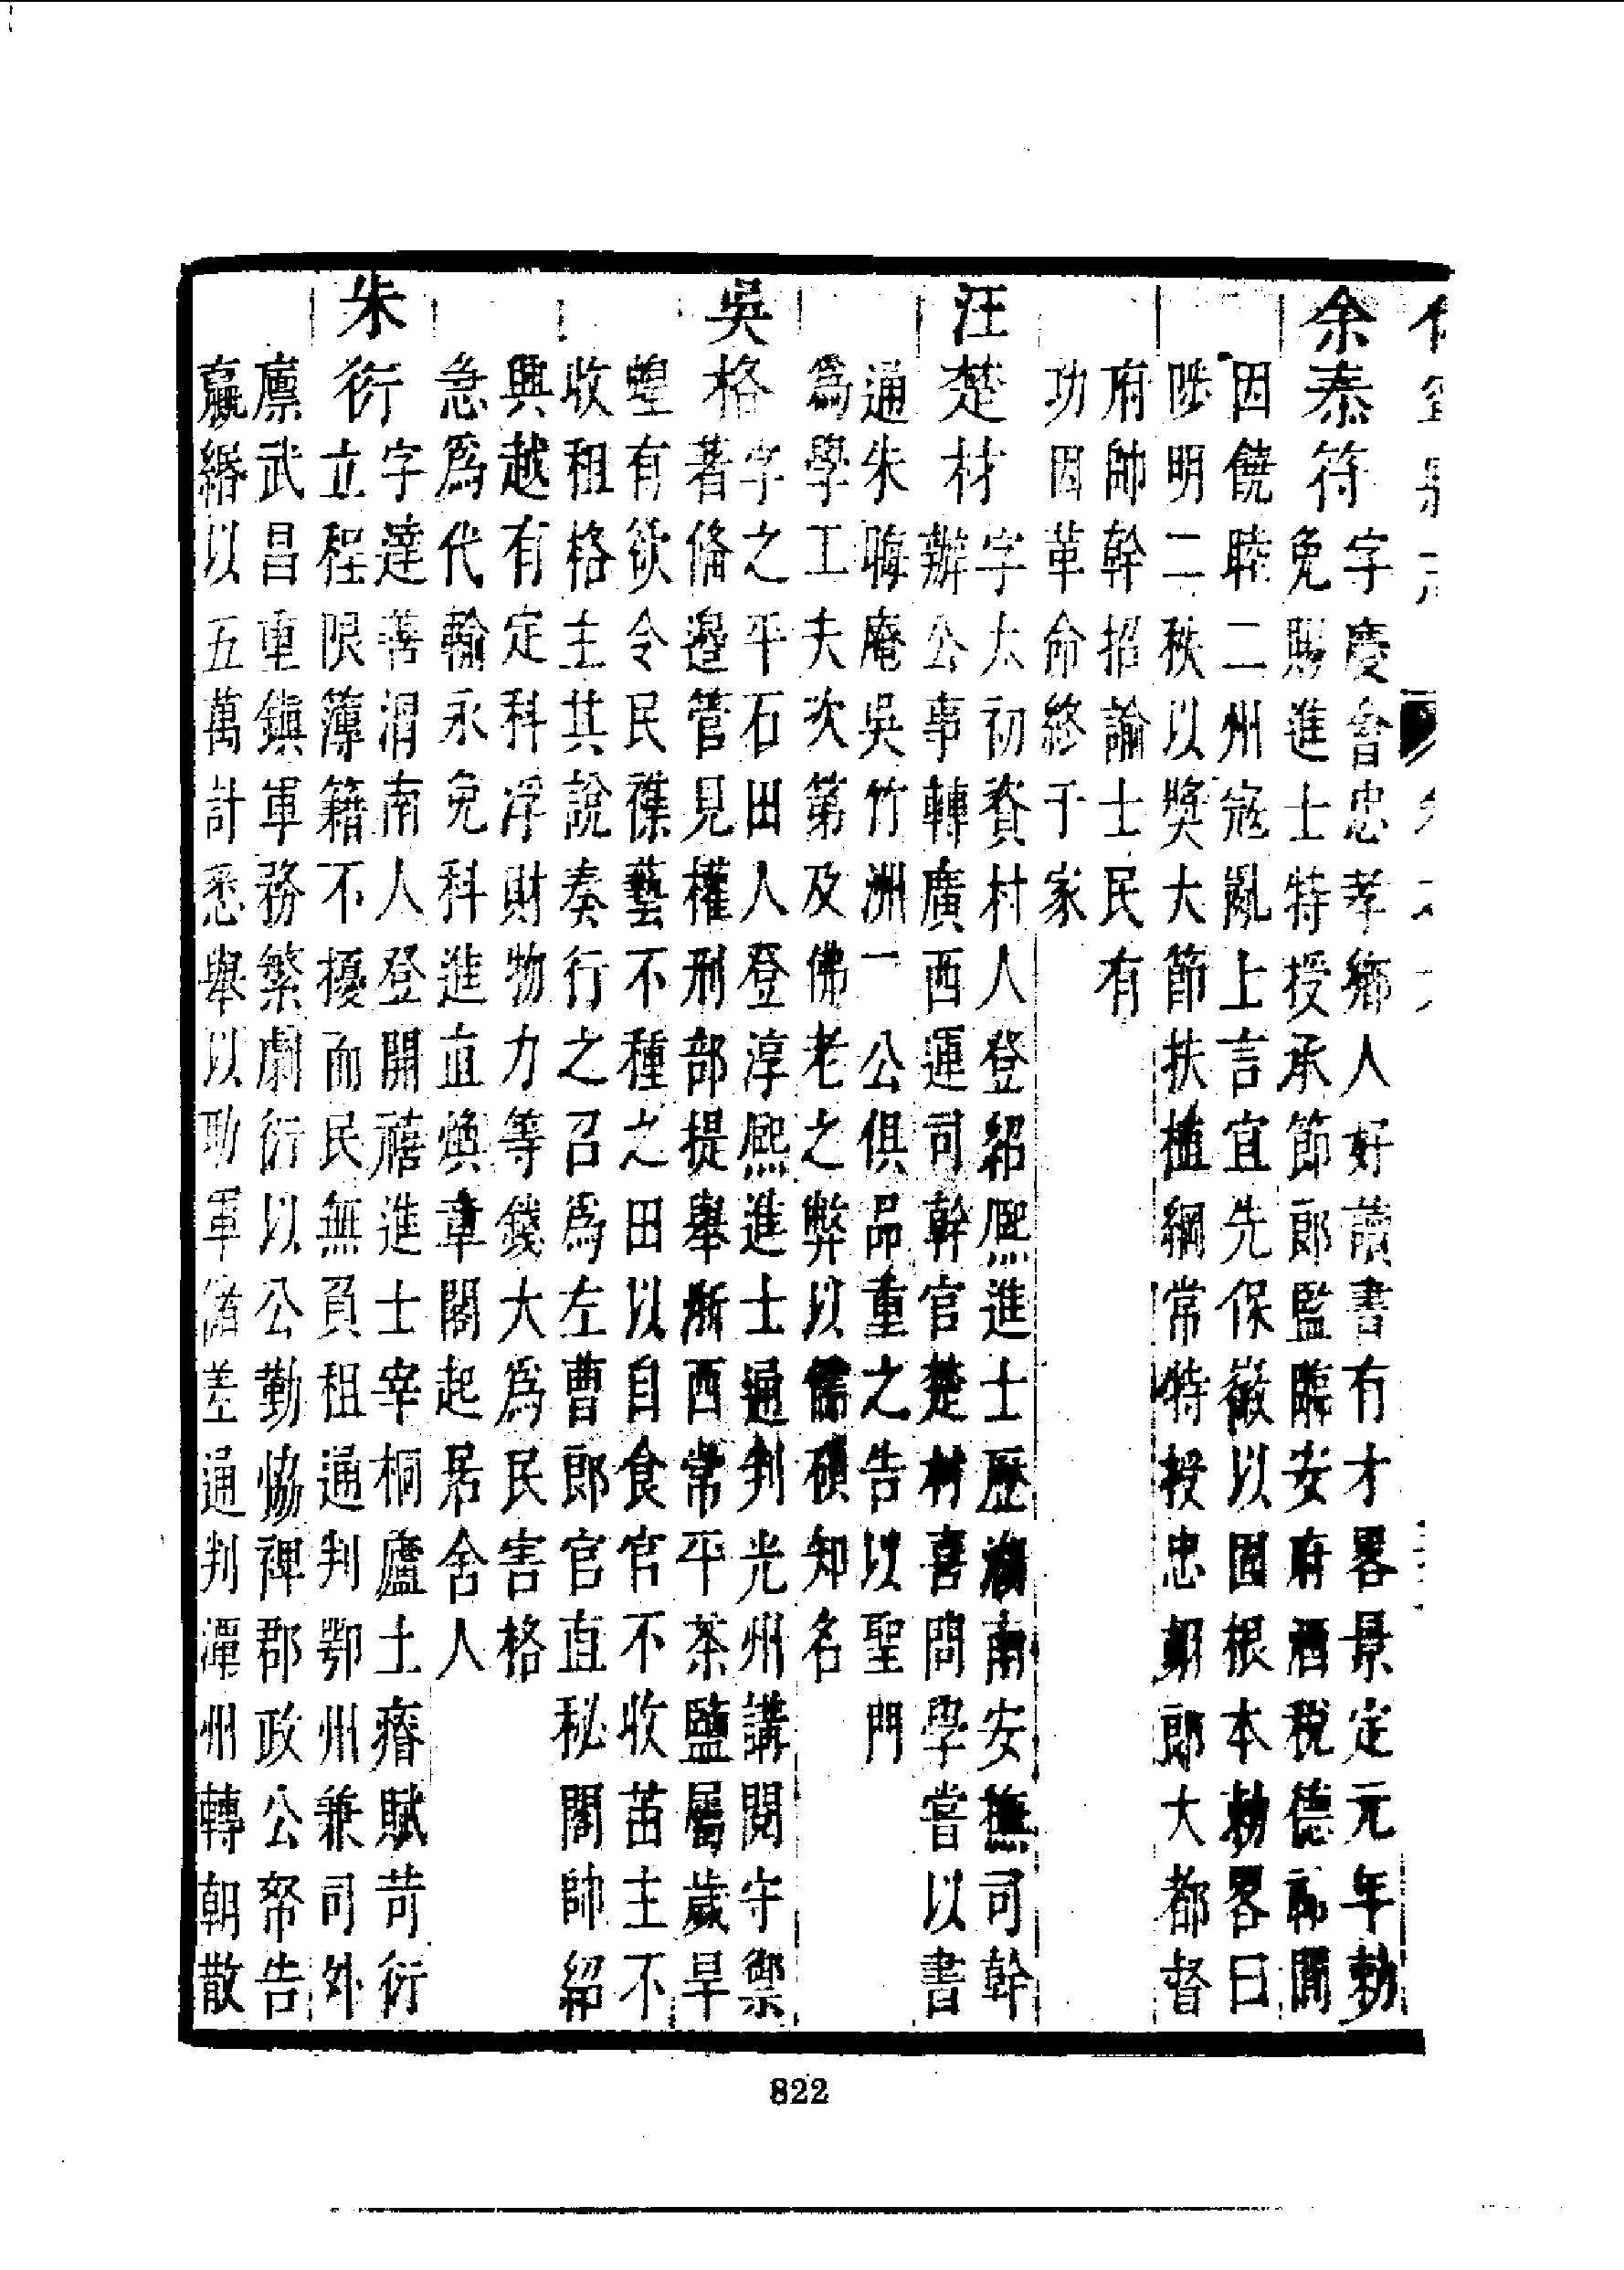 余泰符
字慶會忠孝鄉人好讀書有才畧景定元年勅
免賜進士特授承節郎監臨安府酒稅德祐間
因饒睦二州寇亂上言宜先保徽以固根本勅畧曰
陟明二秩以奬大節扶植綱常特授忠翊郎大都督
府帥幹招諭士民有
功因革命終于家
汪楚材
字太初資村人登紹熙進士歷湖南安撫司幹
辦公事轉廣西運司幹官楚材喜問學嘗以書
通朱晦庵吳竹洲一公俱品重之告以聖門
爲學工夫次第及佛老之弊以儒碩知名
吳格
字之平石田人登淳熙進士通判光州講閱守禦
著偹邉管見權刑部提舉浙西常平茶鹽屬歲旱
蝗有欲令民襍藝不種之田以自食官不收苗主不
收租格主其說奏行之召爲左曹郎官直秘閣帥紹
興越有定科浮財物力等錢大爲民害格
急爲代輸永免科進直煥章閣起居舍人
朱衍
字達善渭南人登開禧進士宰桐廬土瘠賦苛衍
立程限簿籍不擾而民無負租通判鄂州兼司外
廪武昌重鎭軍務繁劇衍以公勤恊裨郡政公帑告
贏緡以五萬計悉舉以助軍儲差通判潭州轉朝散
822